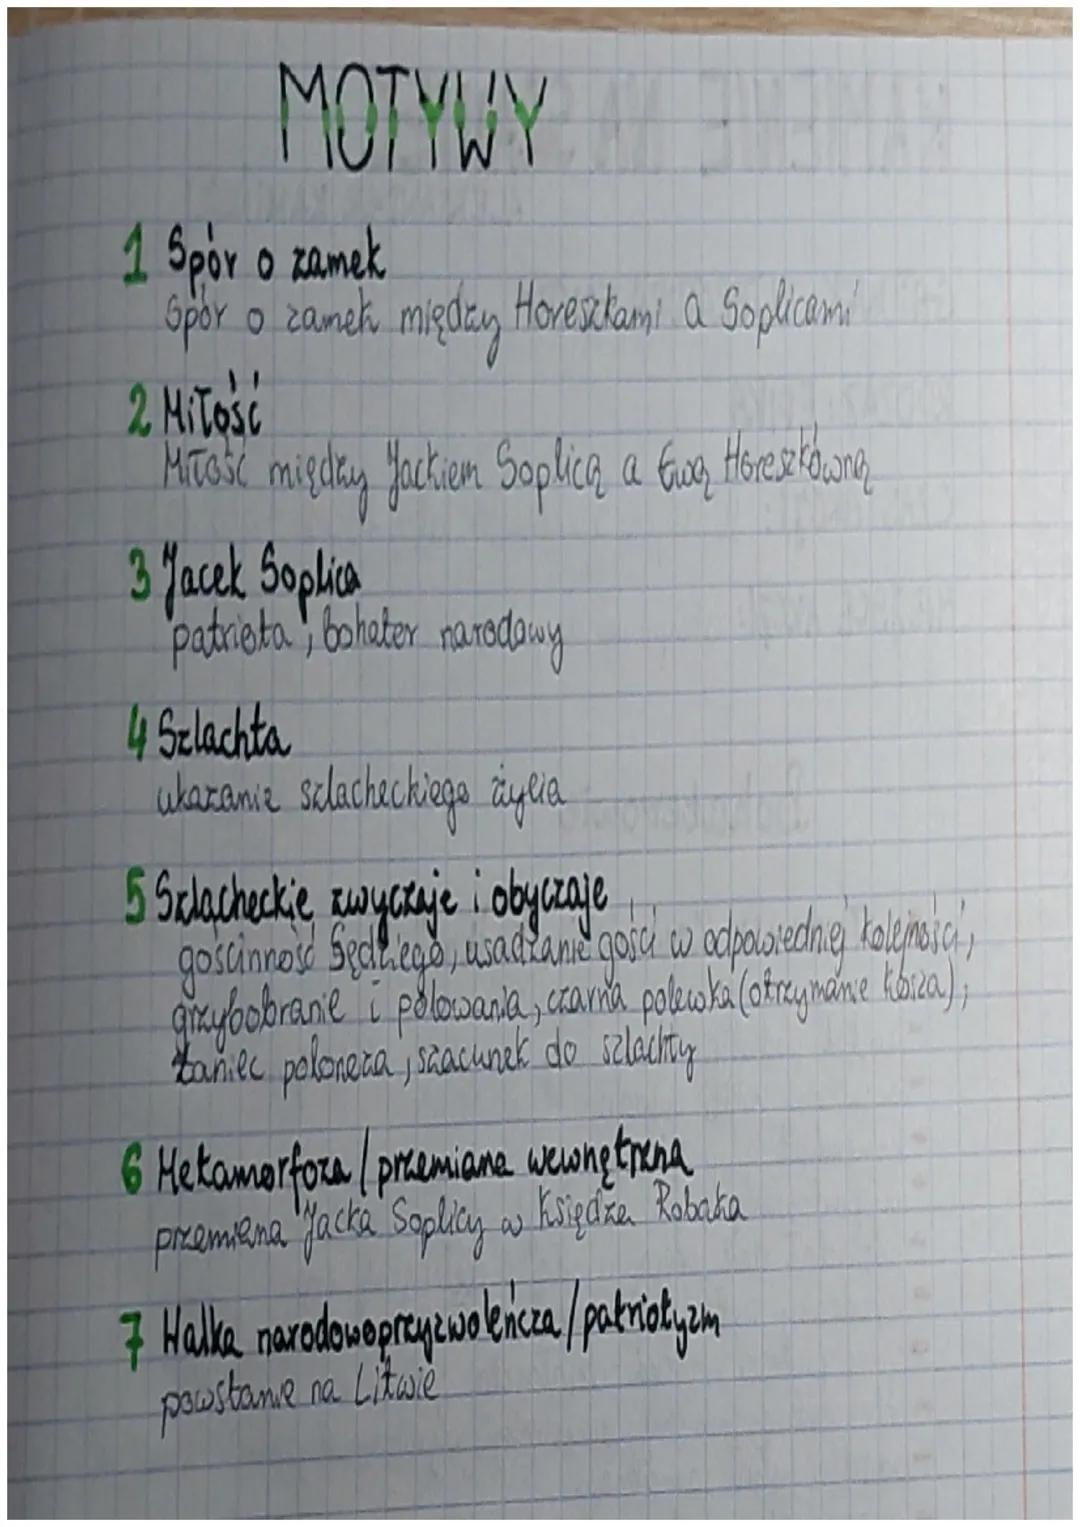 MOTYWY
1 Spór o zamek
Spór o zamek między Horeszkami a Soplicami
2 Miłość
Miłość między Jackiem Soplicą a Ewą Horeszkówną
3 Jacek Soplica
patriota, bohater narodowy
4 Szlachta
ukazanie szlacheckiego życia
5 Szlacheckie zwyczaje i obyczaje
gościnność Sędziego, usadzanie gości w odpowiedniej kolejności,
grzybobranie i polowania, czarna polewka (otrzymanie kosza),
taniec poloneza, szacunek do szlachty
6 Metamorfoza / przemiana wewnętrzna
przemiana Jacka Soplicy w Księdza Robaka
7 Walka narodowoprzyzwoleńcza / patriotyzm
powstanie na Litwie